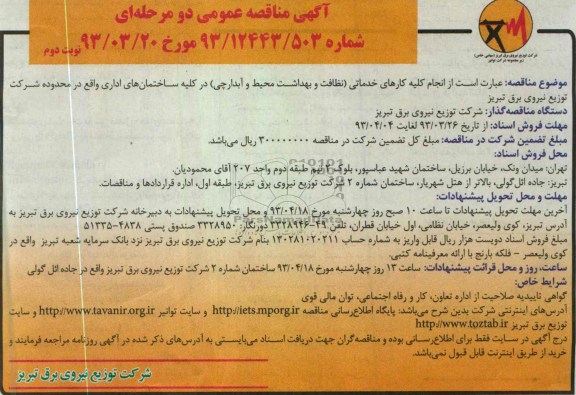 آگهی مناقصه عمومی دو مرحله‌ای
شماره ۹۳/۱۲۴۴۳/۵۰۳ مورخ ۹۳/۰۳/۲۰
نوبت دوم
شرکت توزیع نیروی برق تبریز (سهامی خاص)
موضوع مناقصه: عبارت است از انجام کلیه کارهای خدماتی (نظافت و بهداشت محیط و آبدارچی) در کلیه ساختمان‌های اداری واقع در محدوده شرکت
توزیع نیروی برق تبریز
دستگاه مناقصه‌گذار: شرکت توزیع نیروی برق تبریز
مهلت فروش اسناد: از تاریخ ۹۳/۰۳/۲۶ لغایت ۹۳/۰۴/۰۴
مبلغ تضمین شرکت در مناقصه: مبلغ کل تضمین شرکت در مناقصه ۳۰۰۰۰۰۰۰۰ ریال می‌باشد.
محل فروش اسناد:
تهران: میدان ونک، خیابان برزیل، ساختمان شهید عباسپور، بلوک ۲ نیم طبقه دوم واحد ۲۰۷ آقای محمودیان.
تبریز: جاده ائل‌گولی، بالاتر از هتل شهریار، ساختمان شماره ۲ شرکت توزیع نیروی برق تبریز، طبقه اول، اداره قراردادها و مناقصات.
مهلت و محل تحویل پیشنهادات:
آخرین مهلت تحویل پیشنهادات تا ساعت ۱۰ صبح روز چهارشنبه مورخ ۹۳/۰۴/۱۸ و محل تحویل پیشنهادات به دبیرخانه شرکت توزیع نیروی برق تبریز به
آدرس تبریز، کوی ولیعصر، خیابان نظامی، اول خیابان قطران، تلفن ۴۹-۳۳۲۸۹۴۶ دورنگار: ۳۳۲۸۹۵۰ صندوق پستی ۴۸۳۸-۵۱۳۳۵
مبلغ فروش اسناد دویست هزار ریال قابل واریز به شماره حساب ۱۳۰۲۸۱۰۲۰۲۱۱ بنام شرکت توزیع نیروی برق تبریز نزد بانک سرمایه شعبه تبریز واقع در
کوی ولیعصر – فلکه بارنج با ارائه معرفینامه کتبی.
ساعت، روز و محل قرائت پیشنهادات: ساعت ۱۳ روز چهارشنبه مورخ ۹۳/۰۴/۱۸ ساختمان شماره ۲ شرکت توزیع نیروی برق تبریز واقع در جاده ائل گولی
شرایط خاص:
گواهی تاییدیه صلاحیت از اداره تعاون، کار و رفاه اجتماعی، توان مالی قوی
آدرس‌های اینترنتی شرکت بدین شرح می‌باشد: پایگاه اطلاع‌رسانی مناقصه http://iets.mporg.ir و سایت توانیر http://www.tavanir.org.ir و سایت
توزیع برق تبریز http://www.toztab.ir
درج آگهی در سایت فقط برای اطلاع‌رسانی بوده و مناقصه‌گران جهت دریافت اسناد می‌بایستی به آدرس‌های ذکر شده در آگهی روزنامه مراجعه فرمایند و
خرید از طریق اینترنت قابل قبول نمی‌باشد.
شرکت توزیع نیروی برق تبریز